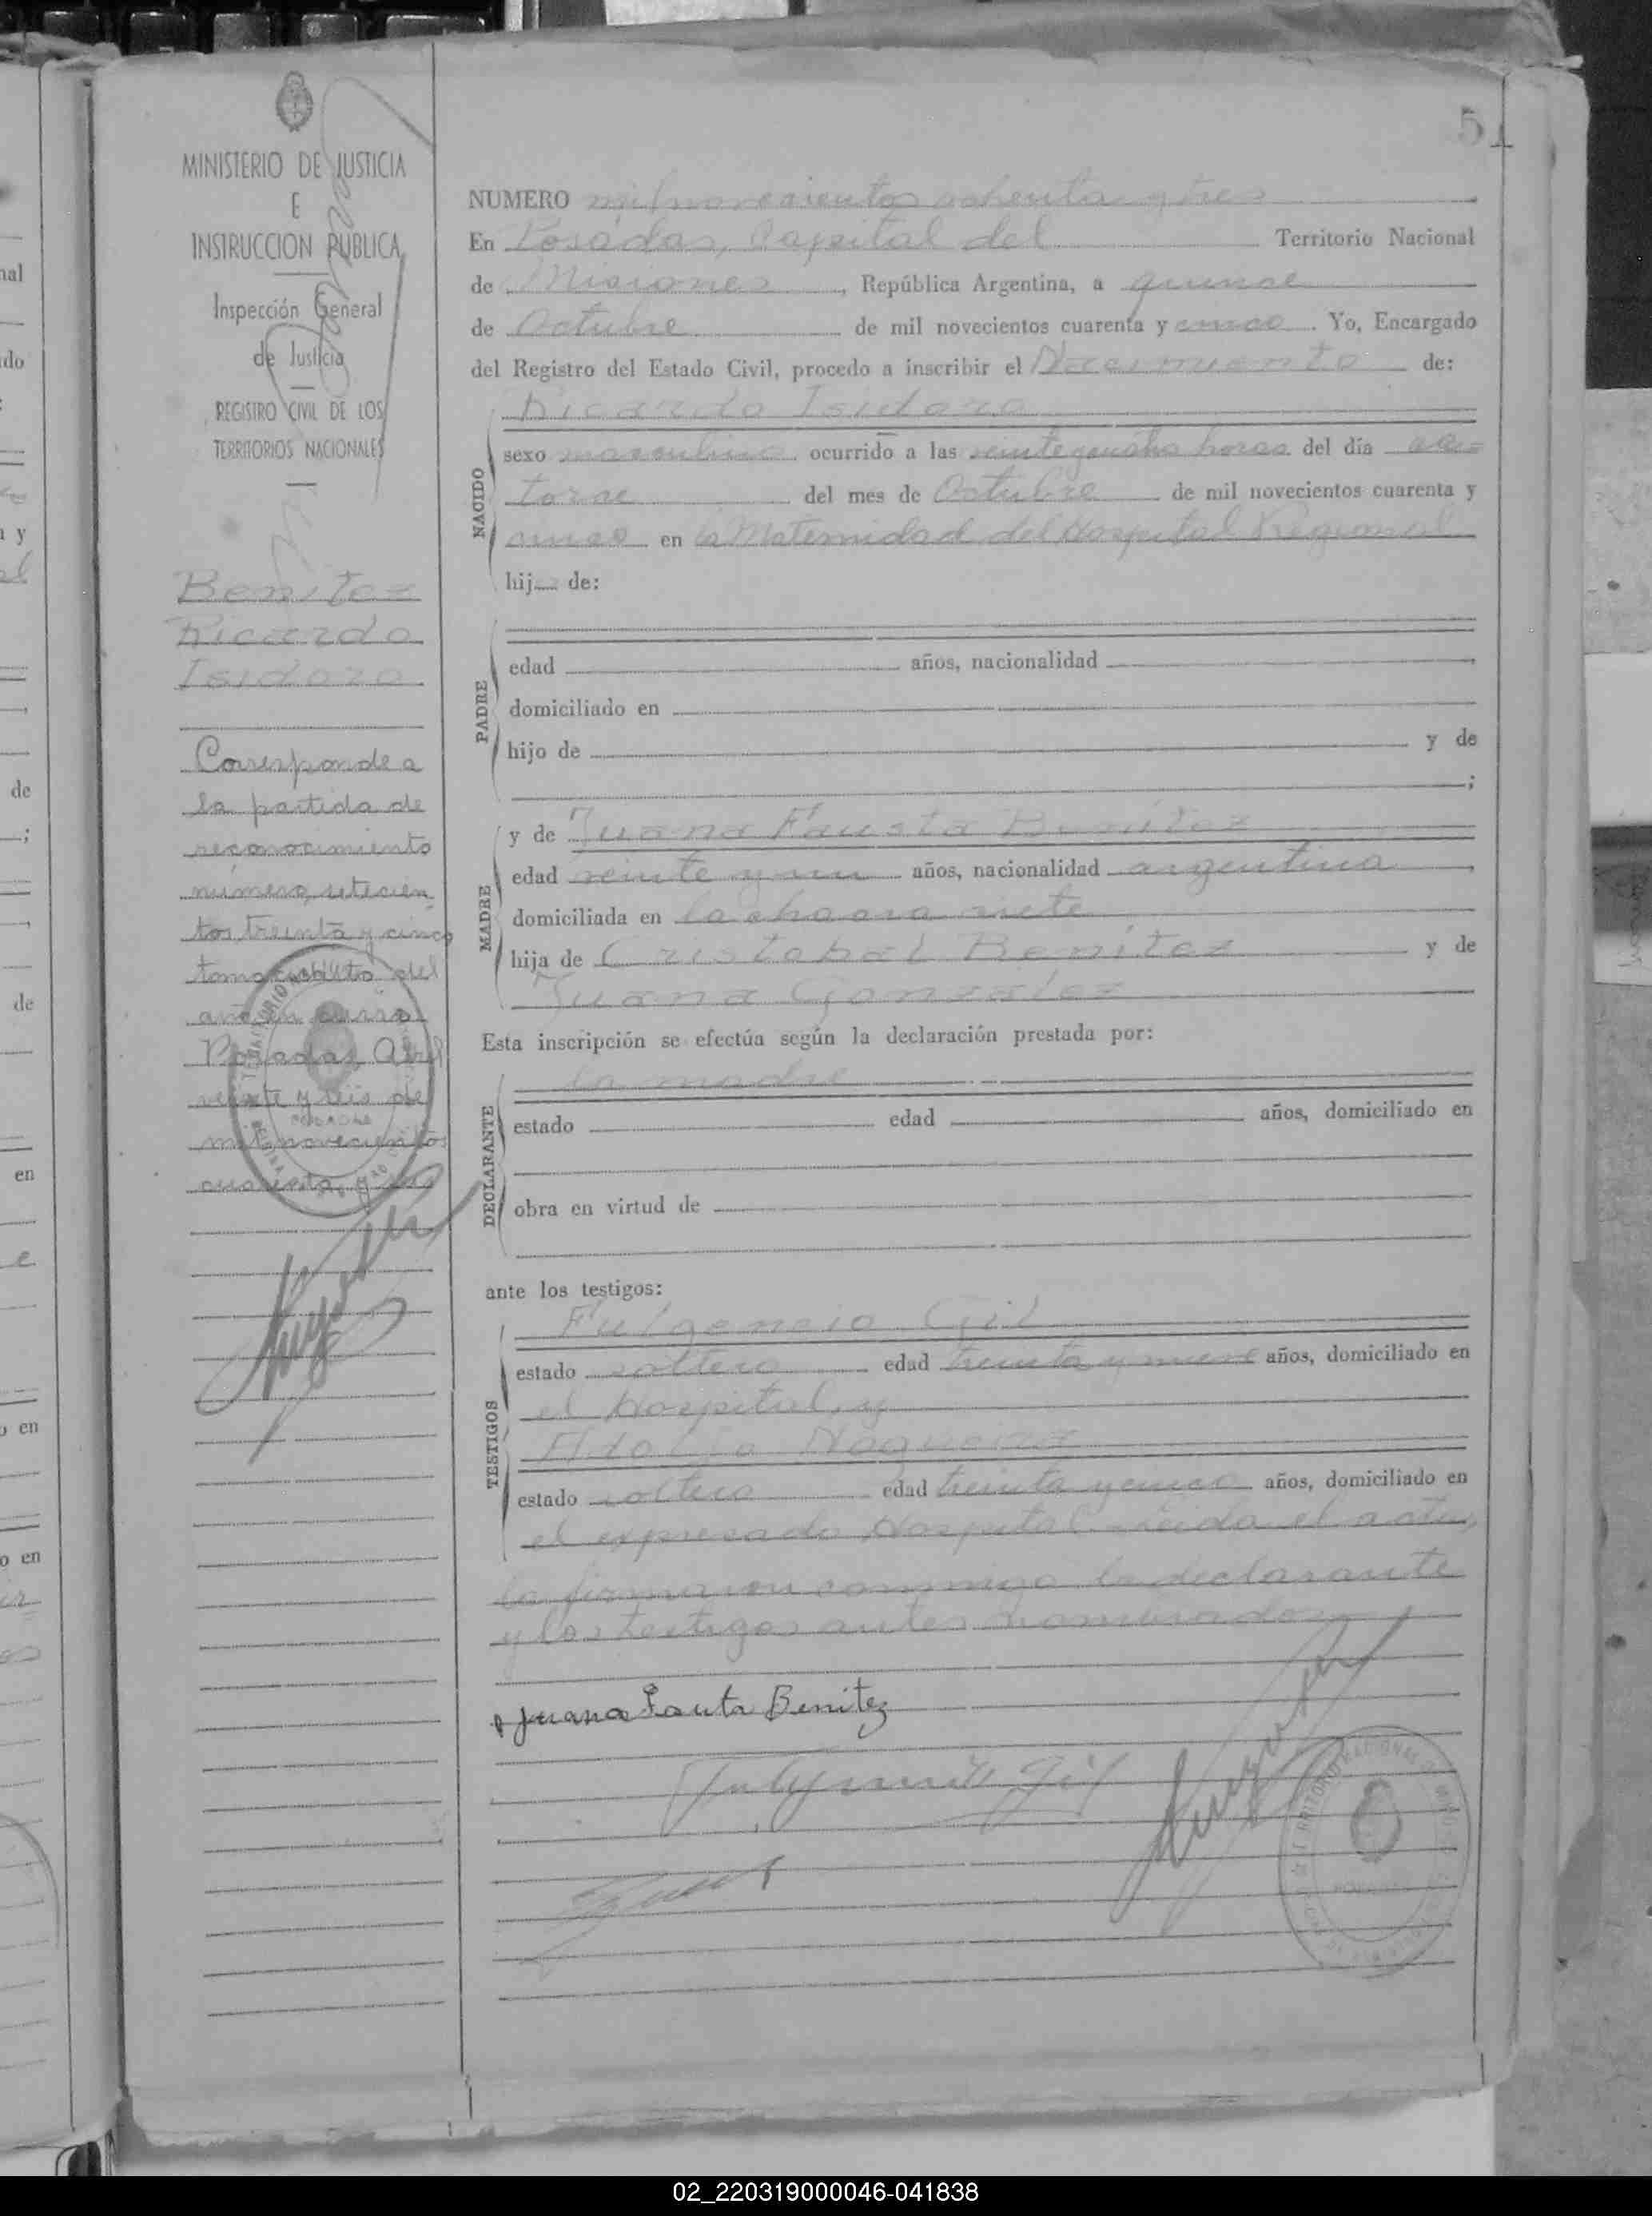 51
MINISTERIO DE JUSTICIA
E
INSTRUCCION PUBLICA
Inspección General
de Justicia
REGISTRO CIVIL DE LOS
TERRITORIOS NACIONALES
Benitez
Ricardo
Isidoro
Corresponde a
la partida de
reconocimiento
número setecien
tos treinta y cinco
tomo del
año en curso
Posadas Abril
veinte y seis de
mil novecientos
cuarenta y seis
NUMERO mil novecientos ochenta y tres
En Posadas, Capital del Territorio Nacional
de Misiones, República Argentina, a quince
de Octubre de mil novecientos cuarenta y cinco. Yo, Encargado
del Registro del Estado Civil, procedo a inscribir el Nacimiento de:
NACIDO
Ricardo Isidoro
sexo masculino ocurrido a las veinte y cuatro horas del día ca-
torce del mes de Octubre de mil novecientos cuarenta y
cinco en la Maternidad del Hospital Regional
hij de:
PADRE
edad años, nacionalidad
domiciliado en
hijo de y de
;
MADRE
y de Juana Fausta Benítez
edad veinte y un años, nacionalidad argentina
domiciliada en la chacra siete
hija de Cristobal Benítez y de
Juana Gonzalez
Esta inscripción se efectúa según la declaración prestada por:
DECLARANTE
la madre
estado edad años, domiciliado en
obra en virtud de
ante los testigos:
TESTIGOS
Fulgencio Gil
estado soltero edad treinta y nueve años, domiciliado en
el Hospital, y
Adolfo Noguera
estado soltero edad treinta y cinco años, domiciliado en
el expresado Hospital. Leída el acta,
la firmaron conmigo la declarante
y los testigos antes nombrados
Juana Fauta Benitez
02_220319000046-041838